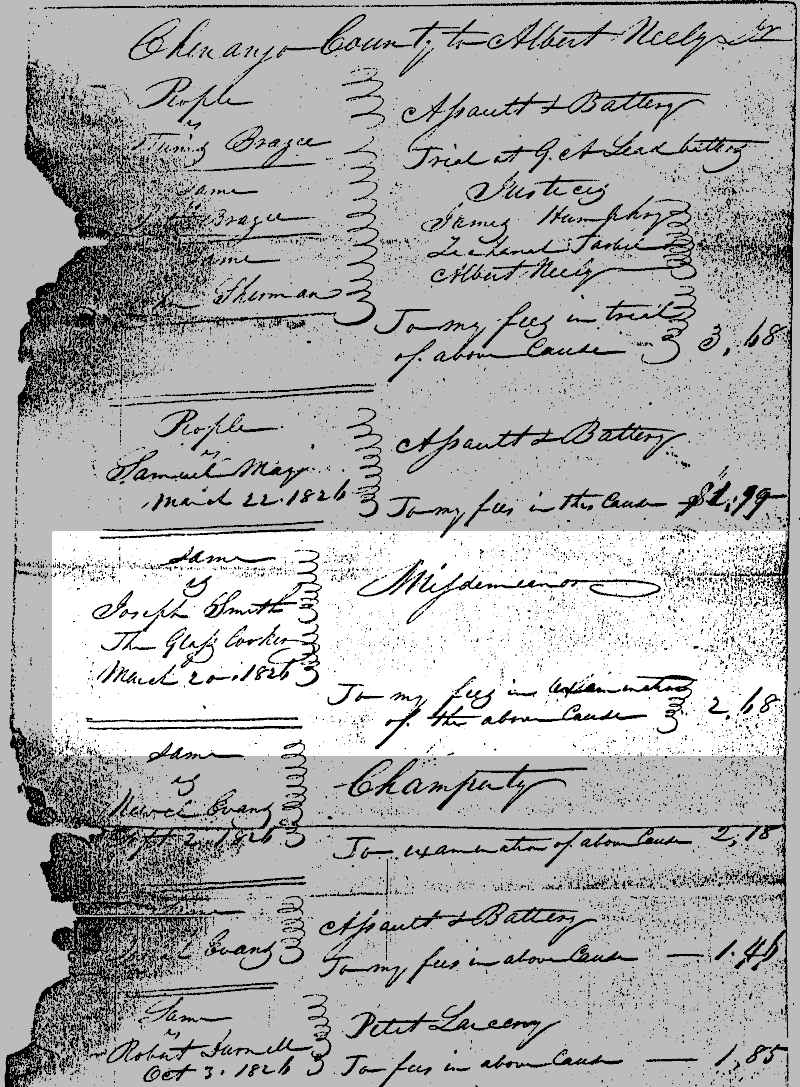 Chenango County to Albert Neely Dr
People
vs
Bragee
Assault & Battery
Trial at G. A. Leadbetters
same
vs
Bragee
Justices
James Humphry
Zechariah Tarble
Albert Neely
same
Sherman
To my fees in trials
of above Cause 3,68
People
vs
Samuel May
March 22. 1826
Assault & Battery
To my fees in this Cause $1,99
same
vs
Joseph Smith
The Glass Looker
March 20. 1826
Misdemeanor
To my fees in examination
of the above Cause 2.68
same
vs
Newel Evans
Sept 2. 1826
Champerty
To examination of above Cause 2,18
Evans
Assault & Battery
To my fees in above Cause — 1.46
Same
vs
Robert Darnell
Oct 3. 1826
Petit Larceny
To fees in above Cause — 1,85